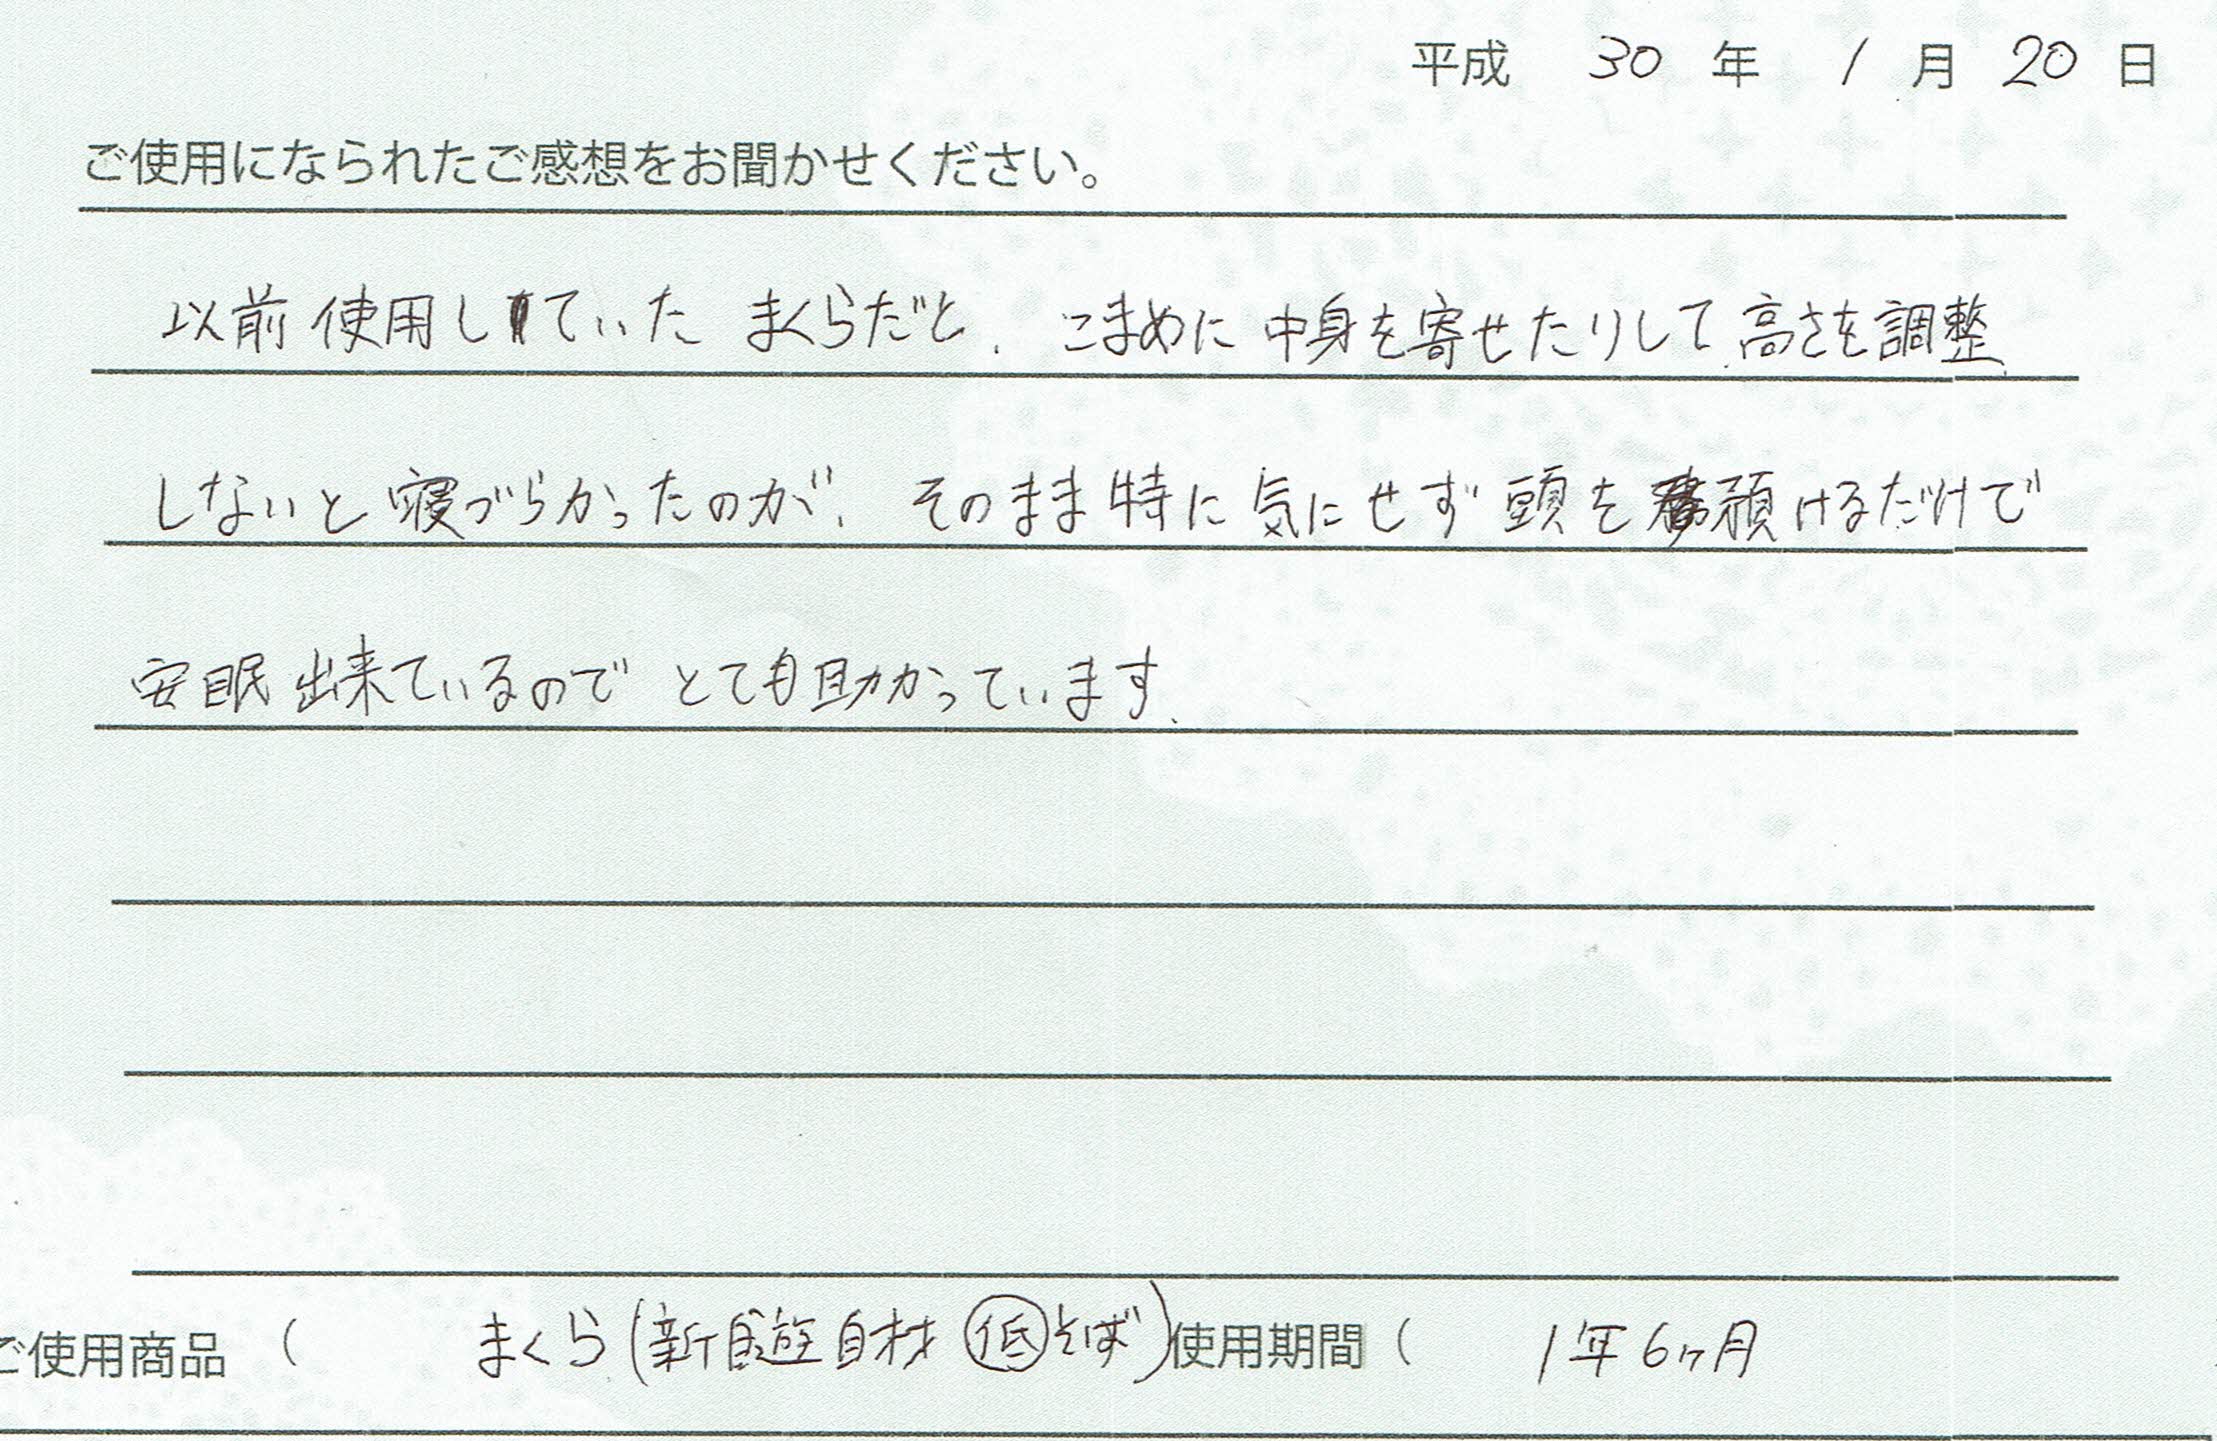 平成 30 年 1 月 20 日
ご使用になられたご感想をお聞かせください。
以前使用していた まくらだと、こまめに中身を寄せたりして高さを調整
しないと寝づらかったのが、そのまま特に気にせず頭を預けるだけで
安眠出来ているので とても助かっています。
ご使用商品 ( まくら(新 遊 自材 低 そば) 使用期間 ( 1年6ヶ月